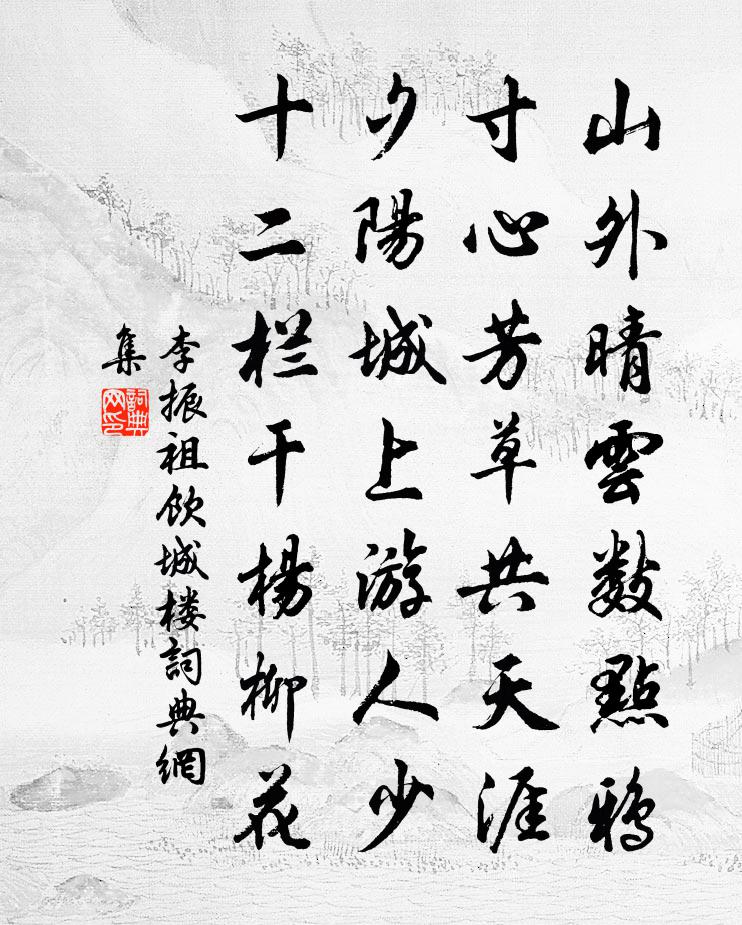 山外晴雲數點鴉
寸心芳草共天涯
夕陽城上游人少
十二栏干楊柳花
李振祖飲城楼詞典網
集
詞典
网印